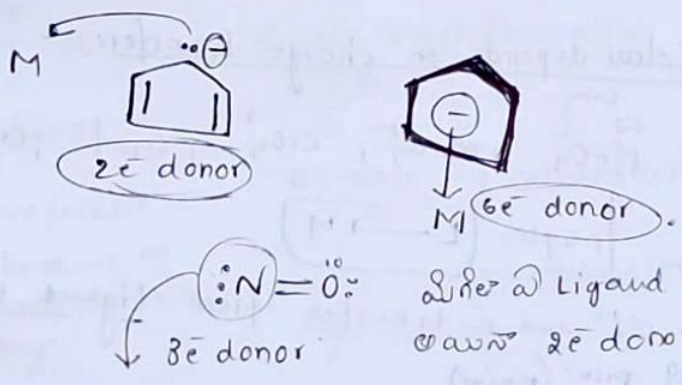 M
⊖
2e̅ donor
−
M
6e̅ donor.
:N=Ö:
3e̅ donor
మిగిలిన ఏ Ligand
అయినా 2e̅ dono